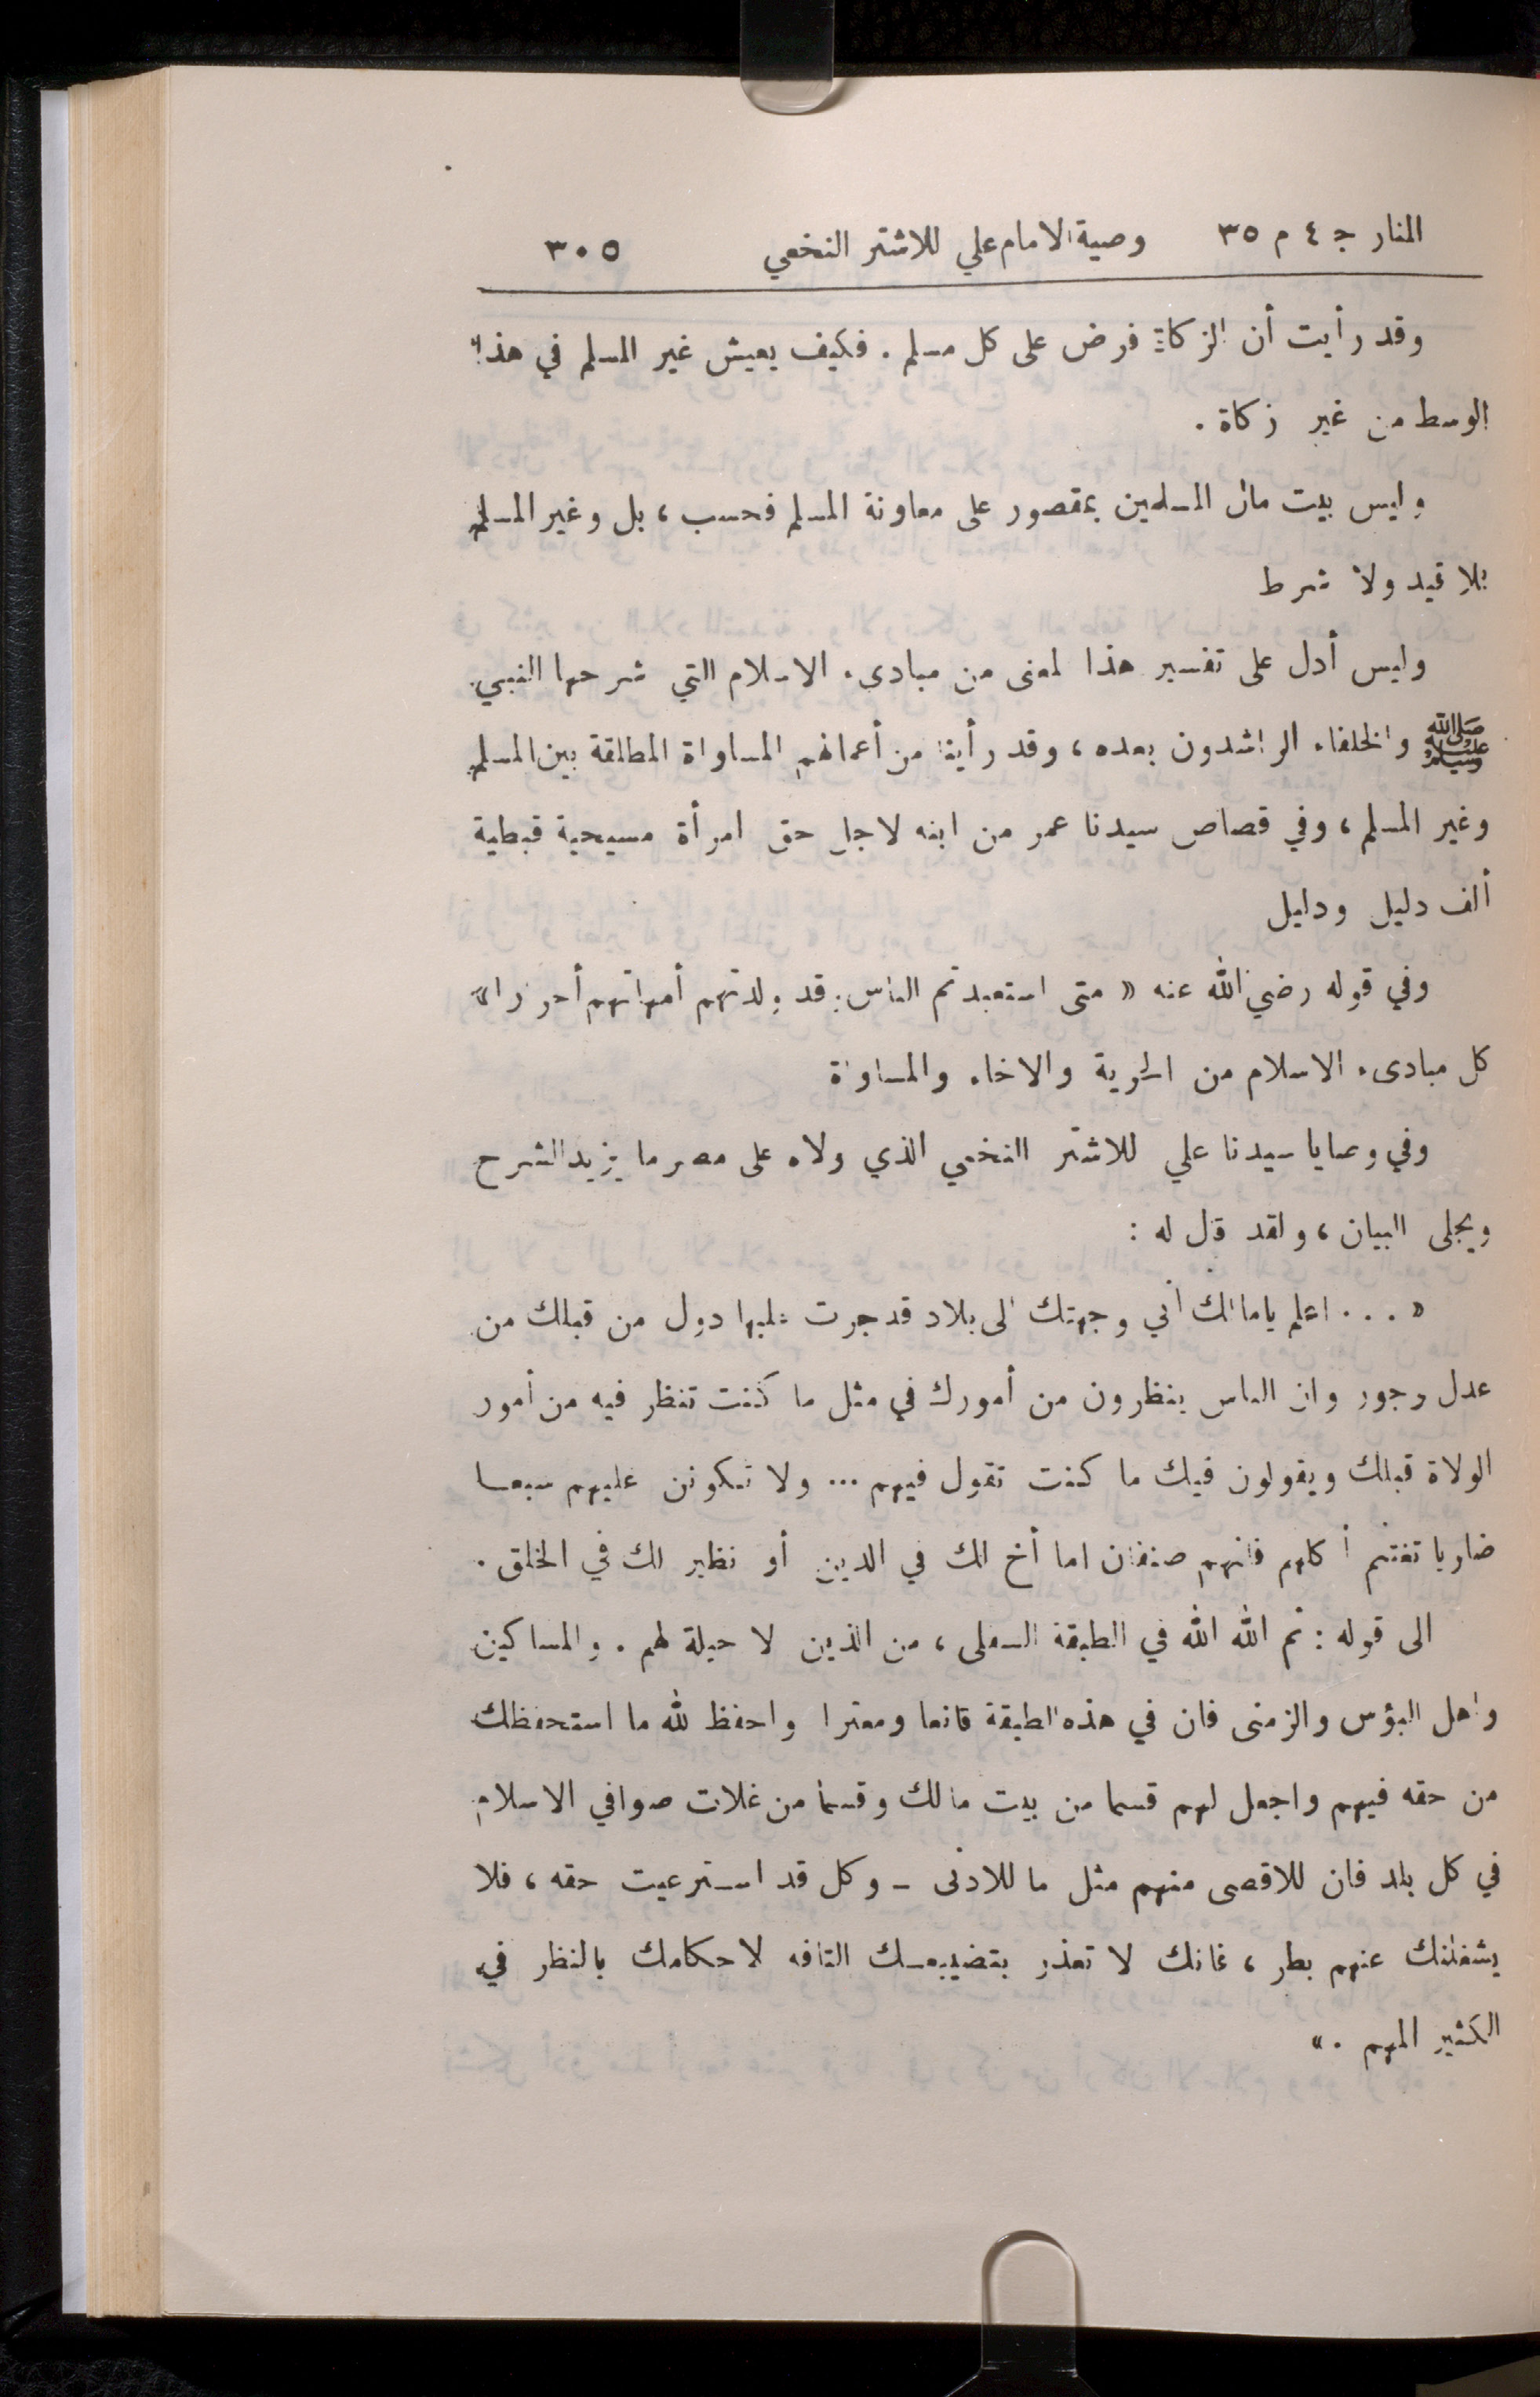 المنار ج ٤ م ٣٥ وصية الامام علي للاشتر النخعي ٣٠٥
وقد رأيت أن الزكاة فرض على كل مسلم . فكيف يعيش غير المسلم في هذا
الوسط من غير زكاة .
وليس بيت مال المسلمين بمقصور على معاونة المسلم فحسب ، بل وغير المسلم
بلا قيد ولا شرط
وليس أدل على تفسير هذا المعنى من مبادىء الاسلام التي شرحها النبي
ﷺ والخلفاء الراشدون بعده ، وقد رأينا من أعمالهم المساواة المطلقة بين المسلم
وغير المسلم ، وفي قصاص سيدنا عمر من ابنه لاجل حق امرأة مسيحية قبطية
ألف دليل ودليل
وفي قوله رضي الله عنه « متى استعبدتم الناس وقد ولدتهم أمهاتهم أحرارا »
كل مبادىء الاسلام من الحرية والاخاء والمساواة
وفي وصايا سيدنا علي للاشتر النخعي الذي ولاه على مصر ما يزيد الشرح
ويجلى البيان ، ولقد قال له :
« ... اعلم يامالك أني وجهتك الى بلاد قد جرت عليها دول من قبلك من
عدل وجور وان الناس ينظرون من أمورك في مثل ما كنت تنظر فيه من أمور
الولاة قبلك ويقولون فيك ما كنت تقول فيهم ... ولا تكونن عليهم سبعا
ضاريا تغتنم أكلهم فانهم صنفان اما أخ لك في الدين أو نظير لك في الخلق .
الى قوله : ثم الله الله في الطبقة السفلى ، من الذين لا حيلة لهم . والمساكين
واهل البؤس والزمنى فان في هذه الطبقة قانعا ومعترا واحفظ لله ما استحفظك
من حقه فيهم واجعل لهم قسما من بيت مالك وقسما من غلات صوافي الاسلام
في كل بلد فان للاقصى منهم مثل ما للادنى ـ وكل قد استرعيت حقه ، فلا
يشغلنك عنهم بطر ، فانك لا تعذر بتضييعك التافه لاحكامك بالنظر في
الكثير المهم . »